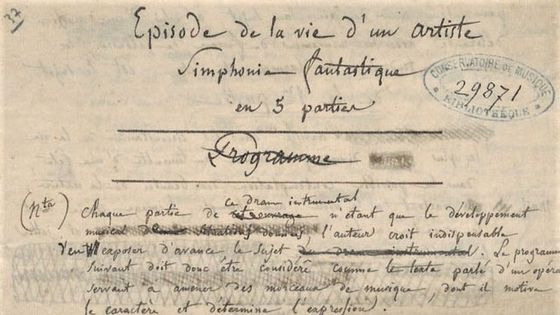 37
Episode de la vie d'un artiste
Simphonie fantastique
en 5 parties
CONSERVATOIRE DE MUSIQUE
29871
BIBLIOTHÈQUE
Programme
(Nta)
ce dram intrumental
Chaque partie de n'étant que le développement
musical de données, l'auteur croit indispensable
d'exposer d'avance le sujet du drame instrumental. Le programme
suivant doit donc être considéré comme le texte parlé d'un opéra
servant à amener des morceaux de musique, dont il motive
le caractère et détermine l'expression.